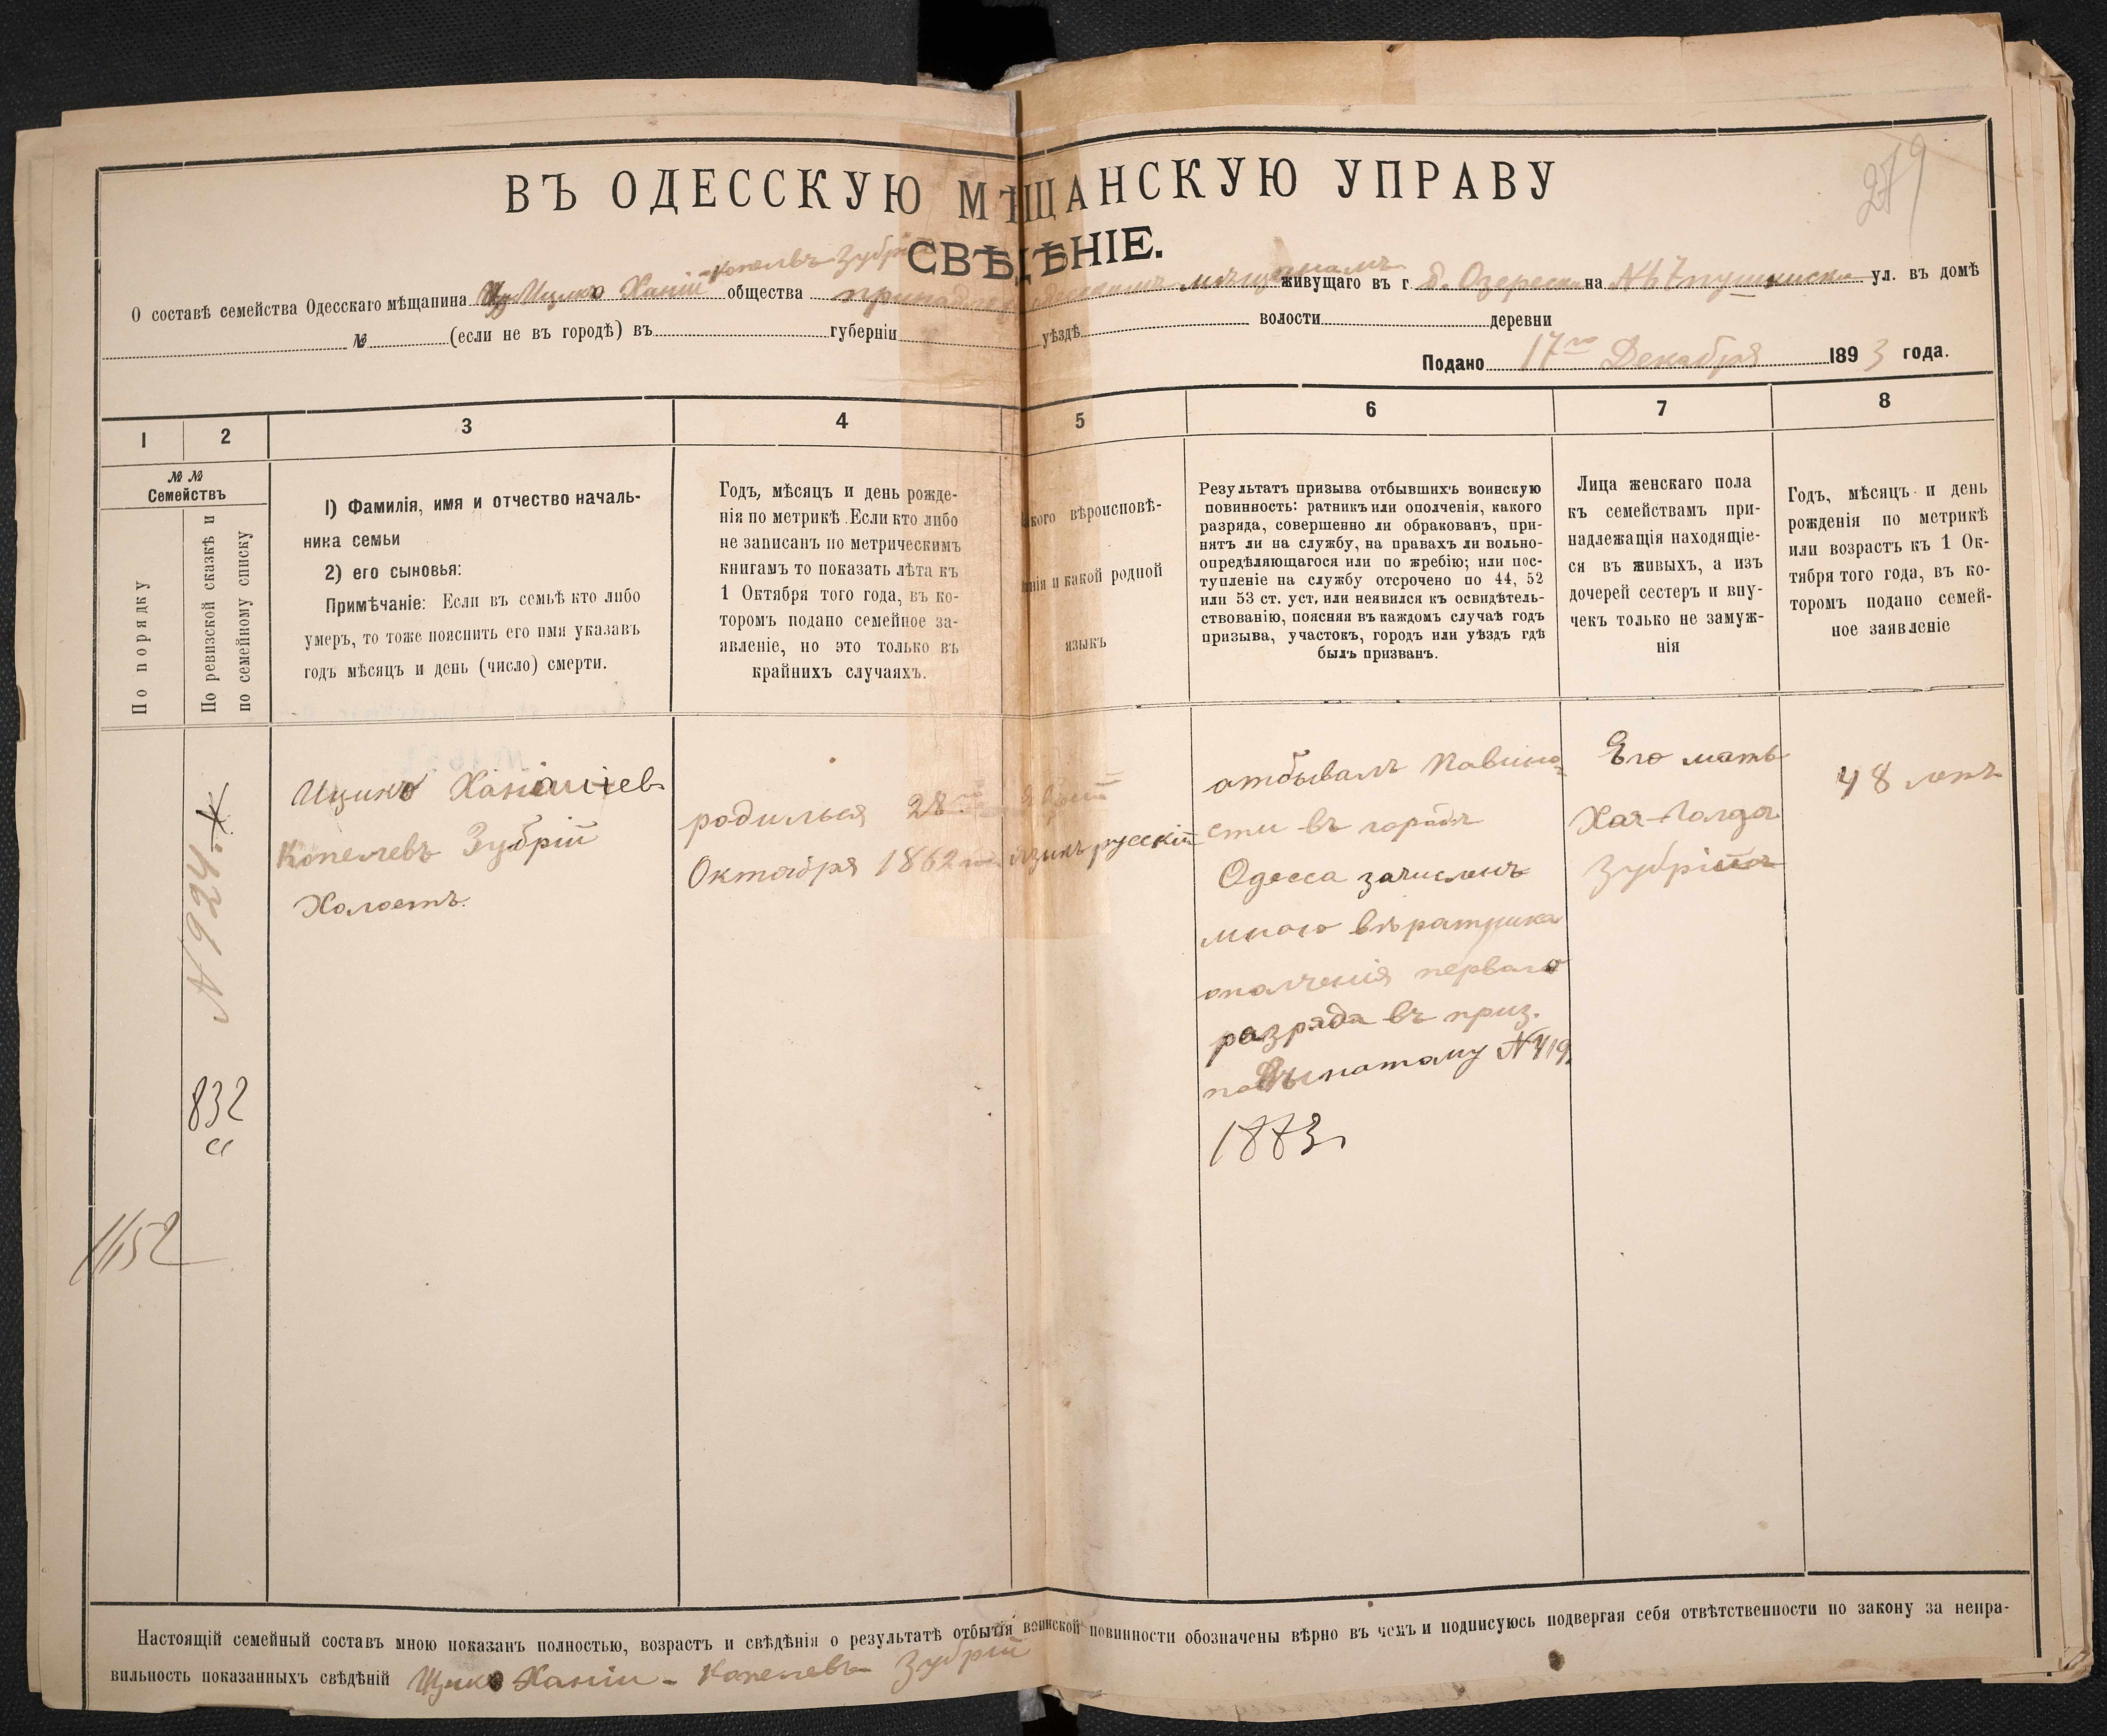 279
ВЪ ОДЕССКУЮ МѢЩАНСКУЮ УПРАВУ
СВѢДѢНІЕ.
Копелевъ Зубрій
О составѣ семейства Одесскаго мѣщанина Ицико Ханіи общества мѣщанамъ живущаго въ г на № 7 ул. въ домѣ
№ (если не въ городѣ) въ губерніи уѣздѣ волости деревни
Подано 17го Декабря 1893 года.
1 2 3 4 5 6 7 8
№ № Семействъ
По порядку
По ревизской сказкѣ и по семейному списку
1) Фамилія, имя и отчество началь-
ника семьи
2) его сыновья:
Примѣчаніе: Если въ семьѣ кто либо
умеръ, то тоже пояснить его имя указавъ
годъ мѣсяцъ и день (число) смерти.
Годъ, мѣсяцъ и день рожде-
нія по метрикѣ. Если кто либо
не записанъ по метрическимъ
книгамъ то показать лѣта къ
1 Октября того года, въ ко-
торомъ подано семейное за-
явленіе, но это только въ
крайнихъ случаяхъ.
акого вѣроисповѣ-
нія и какой родной
языкъ
Результатъ призыва отбывшихъ воинскую
повинность: ратникъ или ополченія, какого
разряда, совершенно ли обракованъ, при-
нятъ ли на службу, на правахъ ли вольно-
опредѣляющагося или по жребію; или пос-
тупленіе на службу отсрочено по 44, 52
или 53 ст. уст, или неявился къ освидѣтель-
ствованію, поясняя въ каждомъ случаѣ годъ
призыва, участокъ, городъ или уѣздъ гдѣ
былъ призванъ.
Лица женскаго пола
къ семействамъ при-
надлежащія находящіе-
ся въ живыхъ, а изъ
дочерей сестеръ и вну-
чекъ только не замуж-
нія
Годъ, мѣсяцъ и день
рожденія по метрикѣ
или возрастъ къ 1 Ок-
тября того года, въ ко-
торомъ подано семей-
ное заявленіе
N 924
832
1152
Ицико
Копелевъ Зубрій
Холостъ.
родился 28го
Октября 1862
языкъ русскій
отбывалъ Повино-
сти въ городѣ
Одесса зачисленъ
ратника
ополченія перваго
разряда въ приз.
1883
Его мать
Зубрій
48 летъ
Настоящій семейный составъ мною показанъ полностью, возрастъ и свѣдѣнія о результатѣ отбытія воинской повинности обозначены вѣрно въ чемъ и подписуюсь подвергая себя отвѣтственности по закону за непра-
вильность показанныхъ свѣдѣній Ицико Ханіи - Копелевъ Зубрій